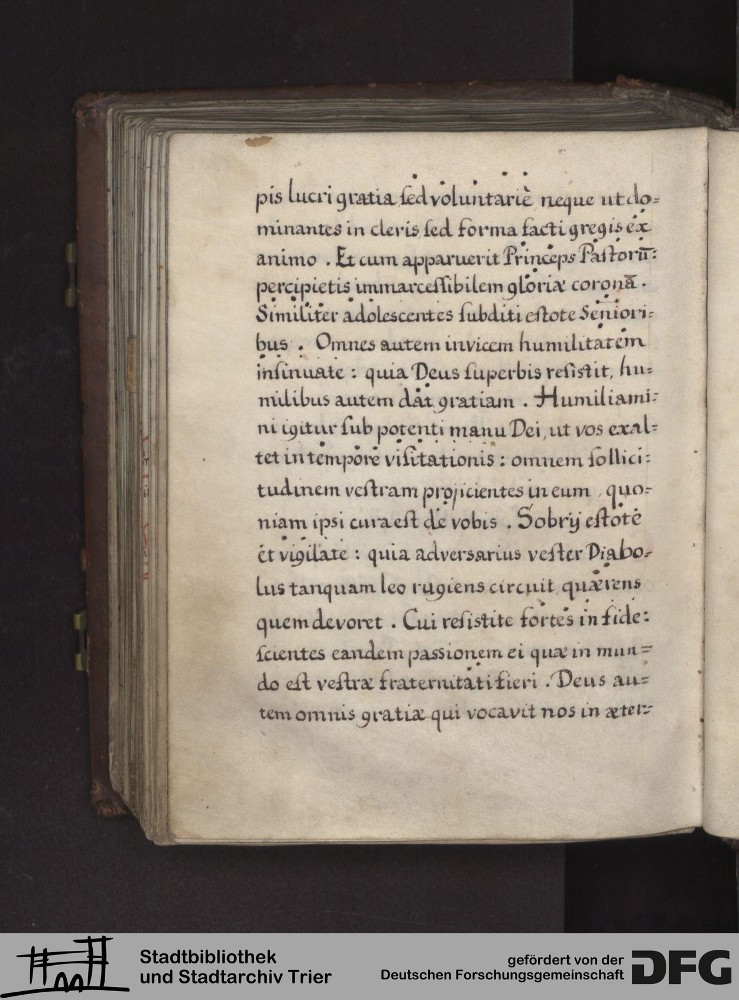 pis lucri gratia sed voluntariè neque ut do=
minantes in cleris sed forma facti gregis ex
animo . Et cum apparuerit Princeps Pastorū:
percipietis immarcessibilem gloriæ coronā .
Similiter adolescentes subditi estote Seniori=
bus . Omnes autem invicem humilitatem
insinuate : quia Deus superbis resistit, hu=
milibus autem dat gratiam . Humiliami=
ni igitur sub potenti manu Dei, ut vos exal=
tet in tempore visitationis : omnem sollici=
tudinem vestram projicientes in eum , quo=
niam ipsi cura est de vobis . Sobrij estote
et vigilate : quia adversarius vester Diabo=
lus tanquam leo rugiens circuit quærens
quem devoret . Cui resistite fortes in fide:
scientes eandem passionem ei quæ in mun=
do est vestræ fraternitati fieri . Deus au=
tem omnis gratiæ qui vocavit nos in æter=
Stadtbibliothek
und Stadtarchiv Trier
gefördert von der
Deutschen Forschungsgemeinschaft
DFG